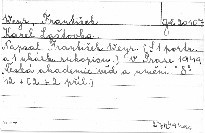 Weyr, František
Karel Laštovka.
Napsal František Weyr. (S 1 portr.
a 1 ukázkou rukopisu.) V Praze 1949.
Česká akademie věd a umění. 8°
12 + [2 + 2 příl.]